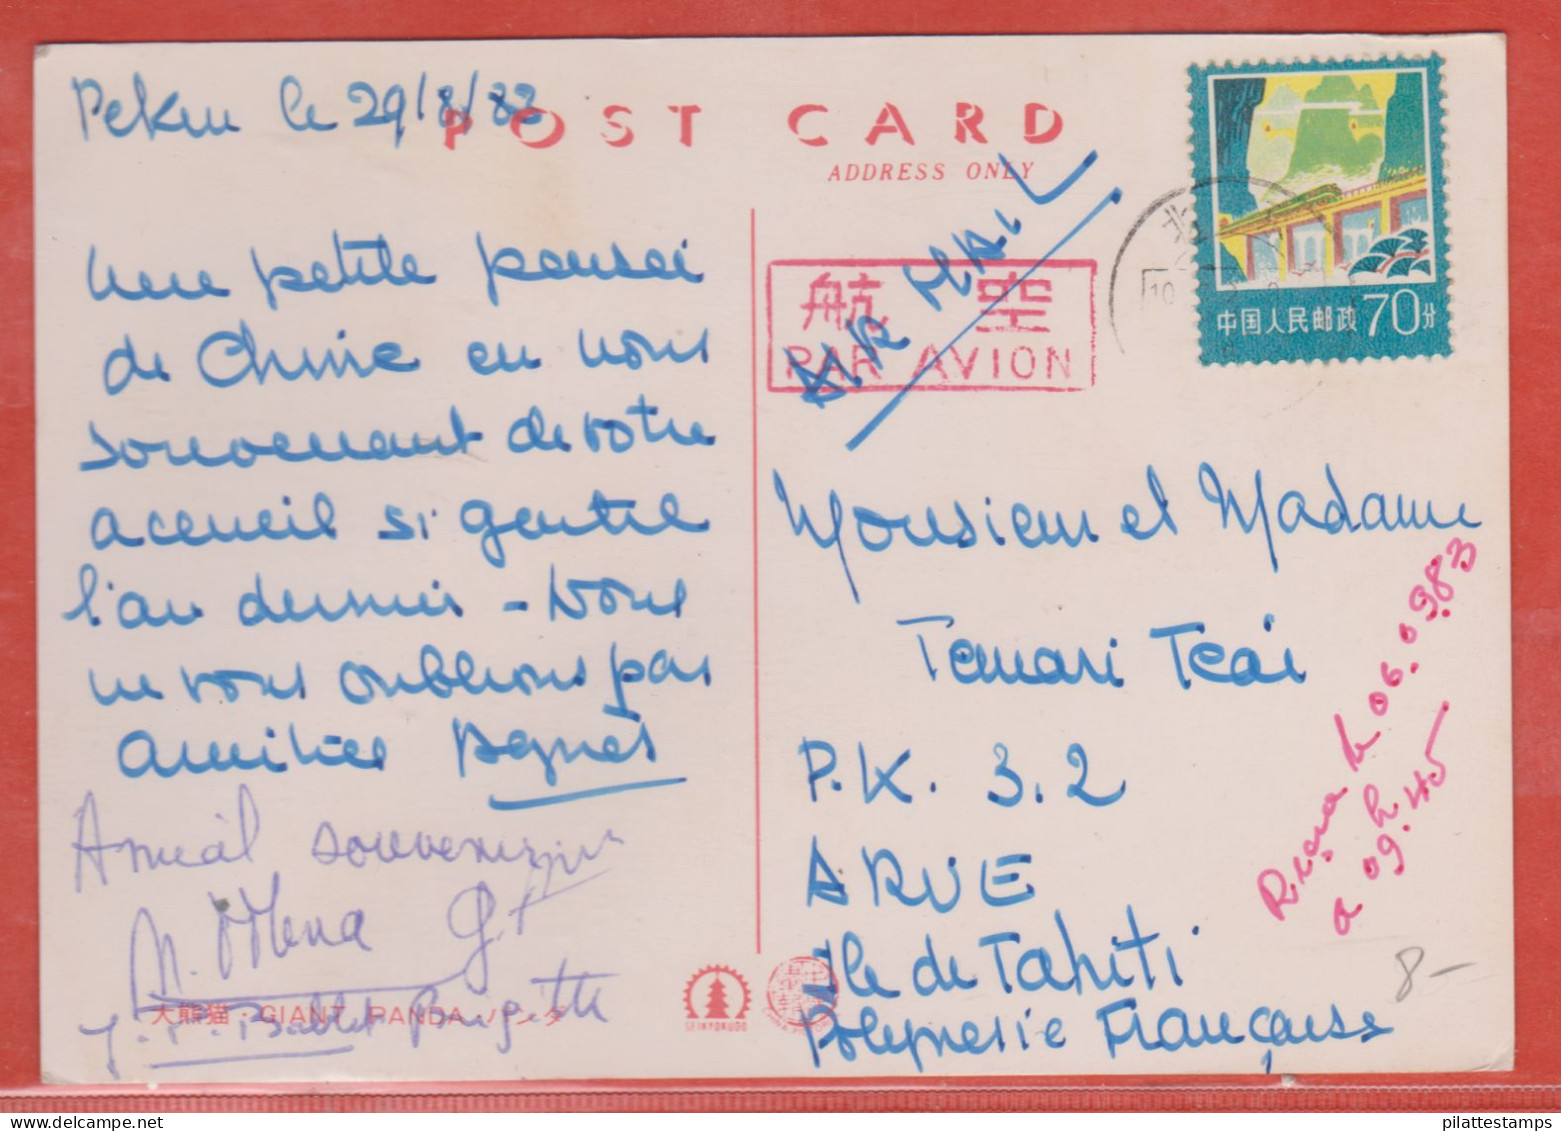 Pekin le 29/8/83
POST CARD
ADDRESS ONLY
AIR MAIL
航空
PAR AVION
中国人民邮政 70分
北
10
Une petite pensée
de Chine en nous
souvenant de votre
accueil si gentil
l'an dernier - Nous
ne vous oublions pas
amitiés Agnès
Amical souvenir
Monsieur et Madame
Temari Teai
P.K. 3.2
ARUE
Ile de Tahiti
Polynésie Française
Reçu le 06.09.83
a 09h.45
8-
大熊猫・GIANT PANDA・パンダ
J.P. Ballet Brigitte
SEINYOKUDO
pilattestamps